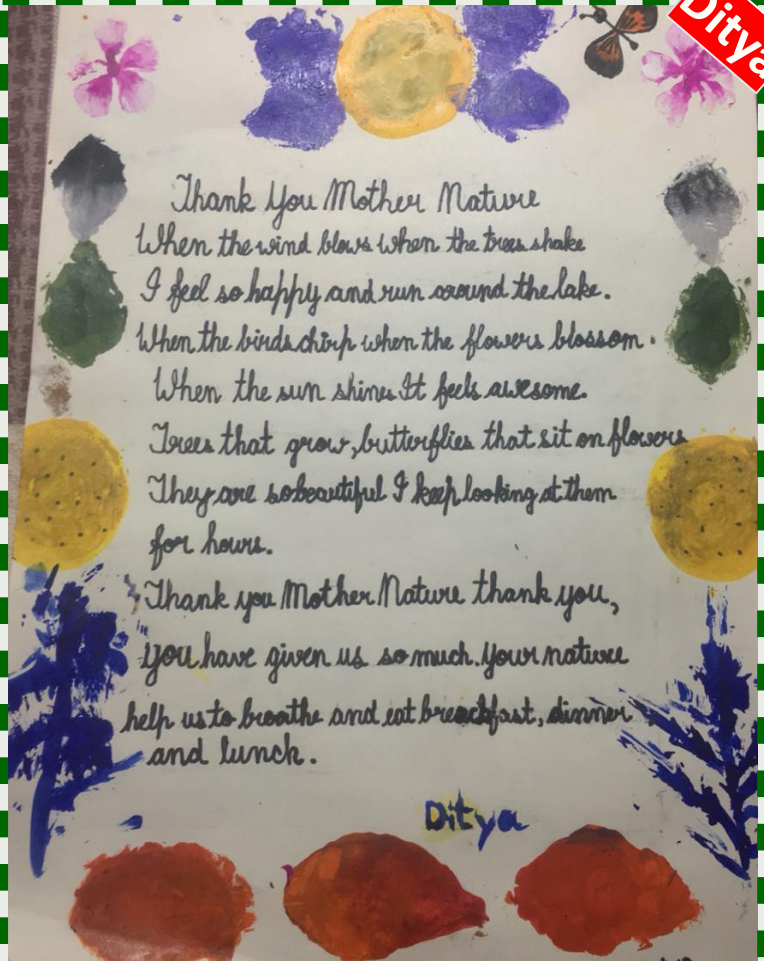 Ditya
Thank You Mother Nature
When the wind blows when the trees shake
I feel so happy and run around the lake.
When the birds chirp when the flowers blossom.
When the sun shines It feels awesome.
Trees that grow, butterflies that sit on flowers
They are so beautiful I keep looking at them
for hours.
Thank you Mother Nature thank you,
you have given us so much. Your nature
help us to breathe and eat breackfast, dinner
and lunch.
Ditya